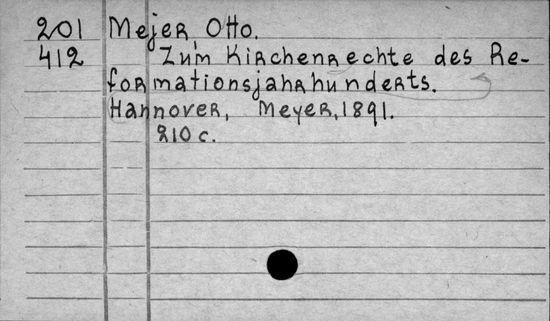 201 Mejer, Otto.
412 Zum Kirchenrechte des Re-
formationsjahrhunderts.
Hannover, Meyer, 1891.
210 c.